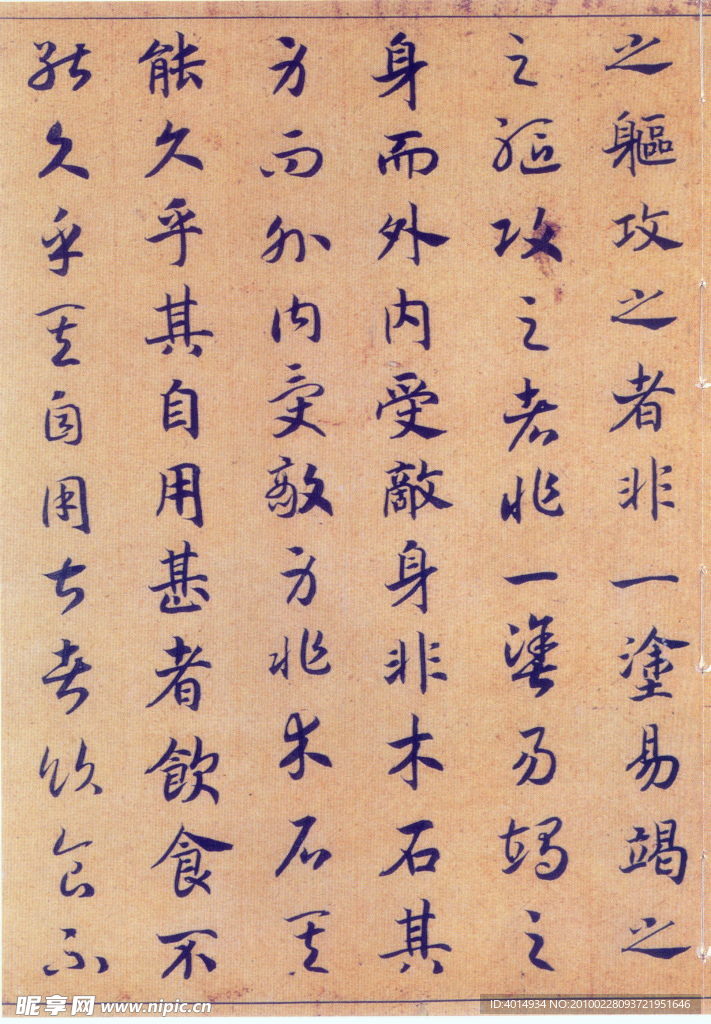 之軀攻之者非一塗易竭之
之軀攻之者非一塗易竭之
身而外内受敵身非木石其
身而外内受敵身非木石其
能久乎其自用甚者飲食不
能久乎其自用甚者飲食不
昵享网 www.nipic.cn
ID:4014934 NO:20100228093721951646